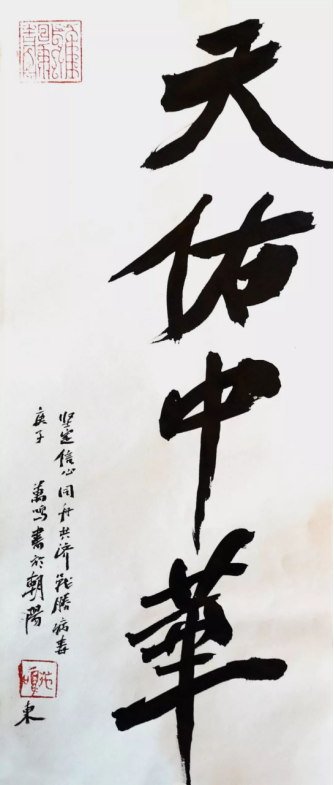 天佑中華
坚定信心同舟共济戰勝病毒
庚子 萬鸣書於朝陽
東